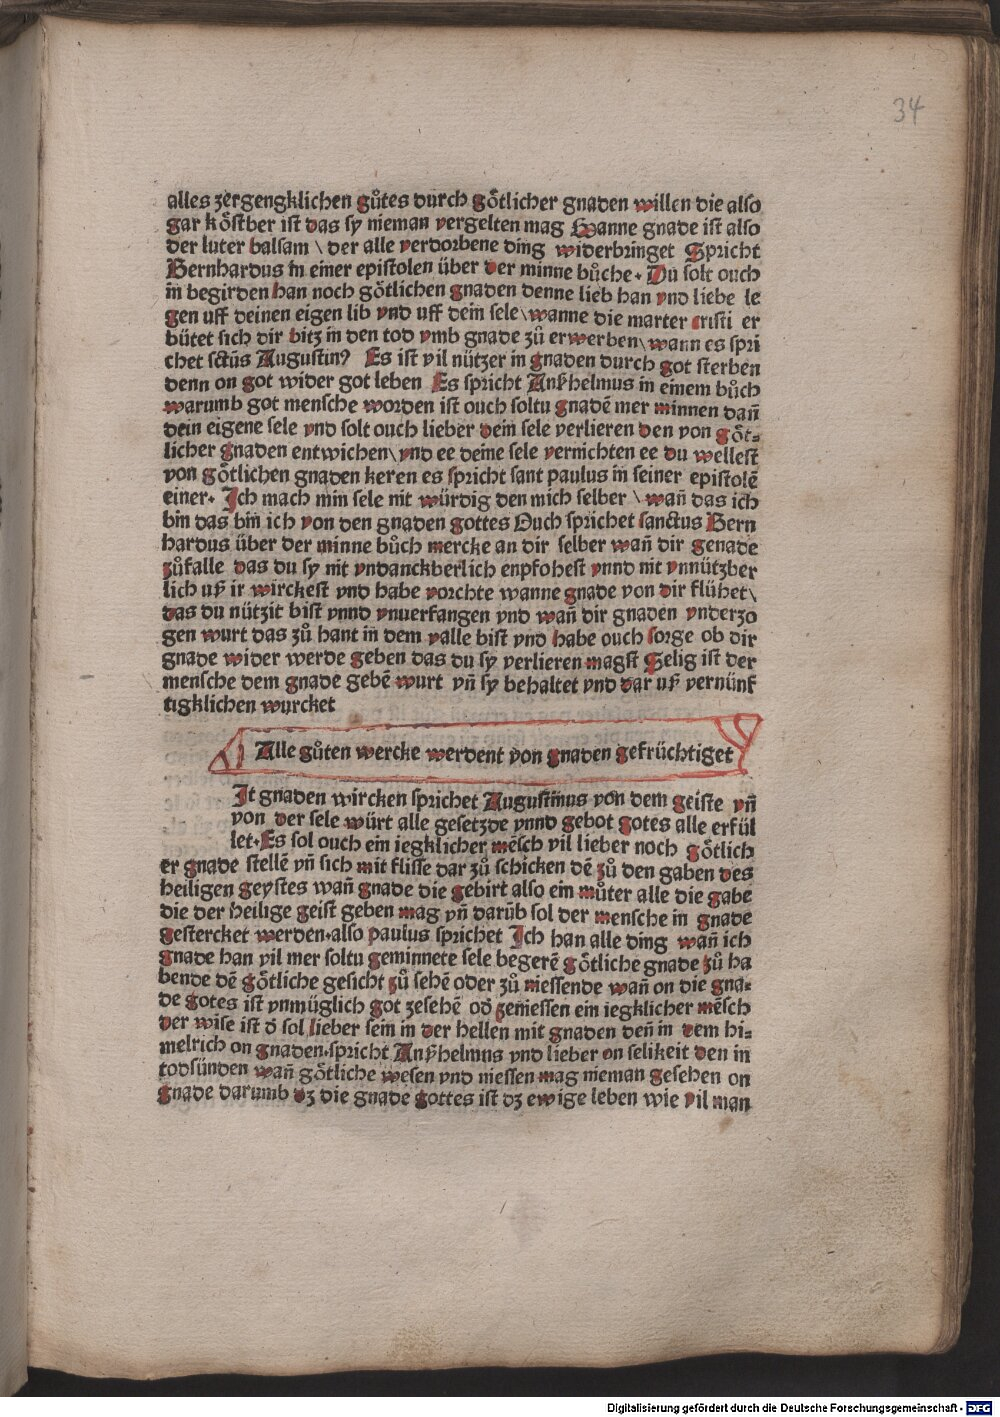 34
alles zergengklichen gůtes durch gőtlicher gnaden willen die also
gar kőstber ist das sy nieman vergelten mag Wanne gnade ist also
der luter balsam \ der alle verdorbene ding widerbringet Spricht
Bernhardus in einer epistolen über der minne bůche. Du solt ouch
in begirden han noch gőtlichen gnaden denne lieb han vnd liebe le
gen uff deinen eigen lib vnd uff dem sele \ wanne die marter cristi er
bütet sich dir bitz in den tod vmb gnade zů erwerben \ wann es spri
chet sctūs Augustinꝰ Es ist vil nützer in gnaden durch got sterben
denn on got wider got leben Es spricht Anßhelmus in einem bůch
warumb got mensche worden ist ouch soltu gnadē mer minnen dañ
dein eigene sele vnd solt ouch lieber dein sele verlieren den von gőt⸗
licher gnaden entwichen \ vnd ee deine sele vernichten ee du wellest
von gőtlichen gnaden keren es spricht sant paulus in seiner epistolē
einer. Ich mach min sele nit würdig den mich selber \ wañ das ich
bin das bin ich von den gnaden gottes Ouch sprichet sanctus Bern
hardus über der minne bůch mercke an dir selber wañ dir genade
zůfalle das du sy nit vndanckberlich enpfohest vnnd nit vnnützber
lich uß ir wirckest vnd habe vorchte wanne gnade von dir flühet \
das du nützit bist vnnd vnuerfangen vnd wañ dir gnaden vnderzo
gen wurt das zů hant in dem valle bist vnd habe ouch sorge ob dir
gnade wider werde geben das du sy verlieren magst Selig ist der
mensche dem gnade gebē wurt vñ sy behaltet vnd dar uß vernünf
tigklichen wurcket
Alle gůten wercke werdent von gnaden gefrüchtiget
It gnaden wircken sprichet Augustinus von dem geiste vñ
von der sele würt alle gesetzde vnnd gebot gotes alle erfül
let. Es sol ouch ein iegklicher mēsch vil lieber noch gőtlich
er gnade stellē vñ sich mit flisse dar zů schicken dē zů den gaben des
heiligen geystes wañ gnade die gebirt also ein můter alle die gabe
die der heilige geist geben mag vñ darūb sol der mensche in gnade
gestercket werden. also paulus sprichet Ich han alle ding wañ ich
gnade han vil mer soltu geminnete sele begerē gőtliche gnade zů ha
bende dē gőtliche gesicht zů sehē oder zů niessende wañ on die gna⸗
de gotes ist vnmüglich got zesehē od̄ zeniessen ein iegklicher mēsch
der wise ist d̄ sol lieber sein in der hellen mit gnaden deñ in dem hi⸗
melrich on gnaden. spricht Anßhelmus vnd lieber on selikeit den in
todsünden wañ gőtliche wesen vnd niessen mag nieman gesehen on
gnade darumb dz die gnade gottes ist dz ewige leben wie vil man
Digitalisierung gefördert durch die Deutsche Forschungsgemeinschaft - DFG